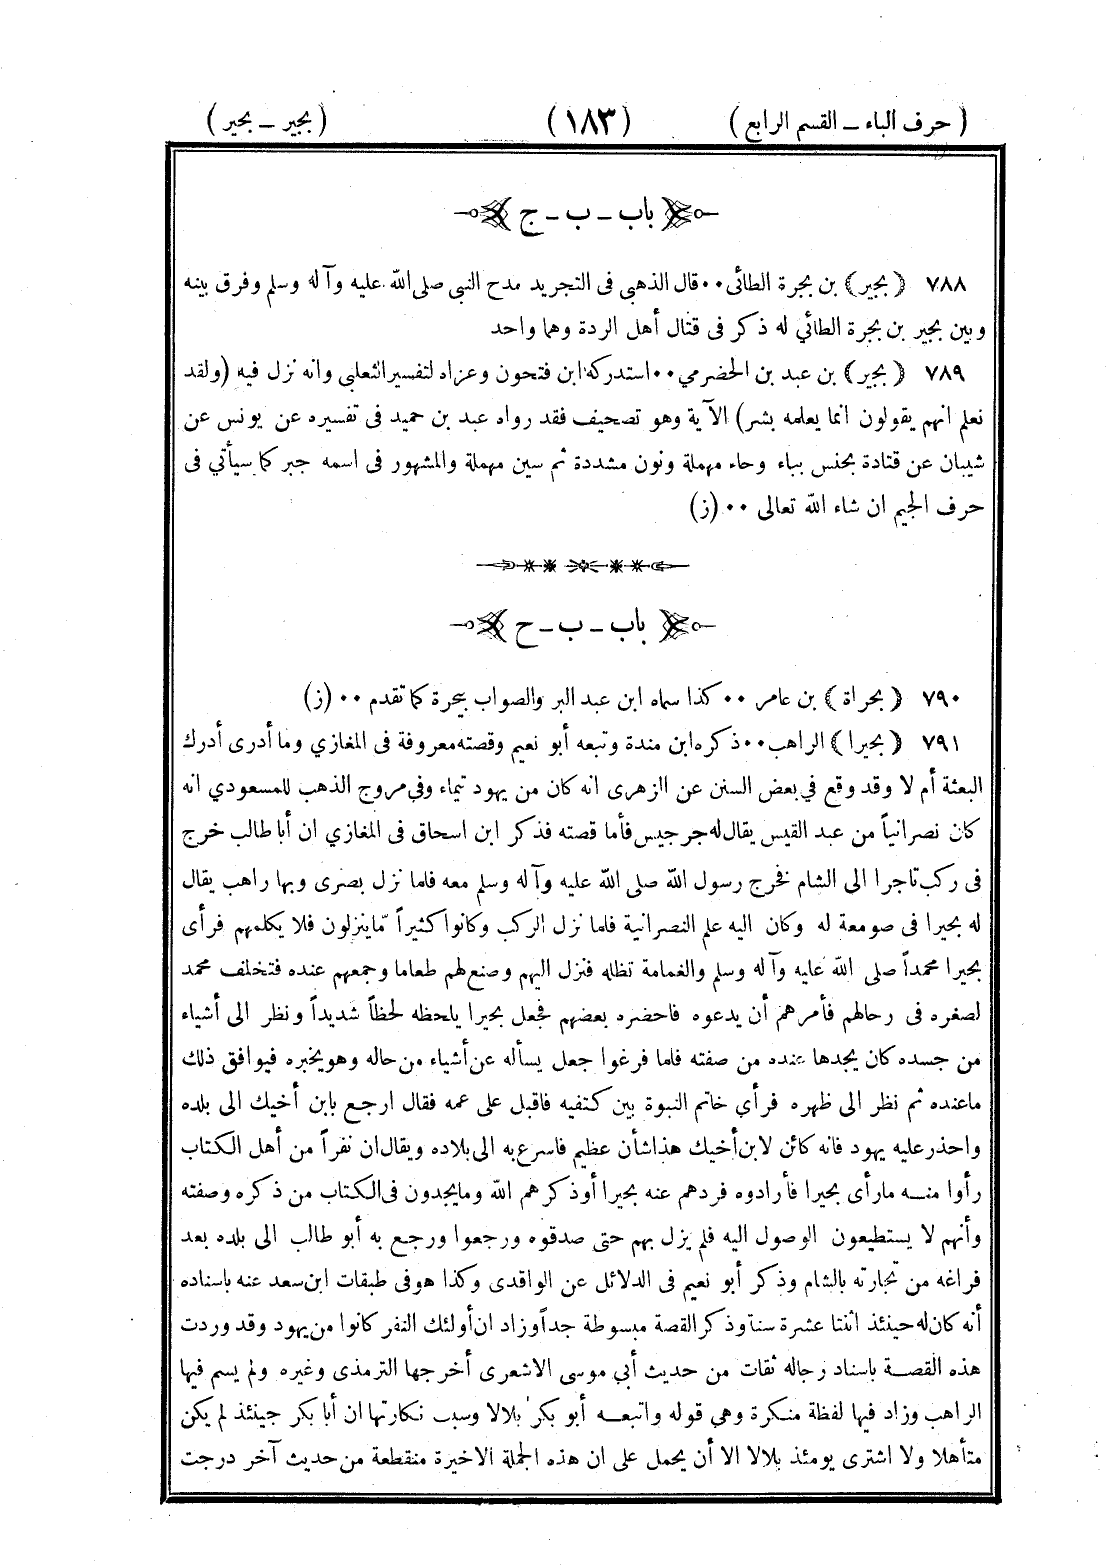 ( حرف الباء ــ القسم الرابع ) (١٨٣) ( بجير ــ بحير )
باب - ب - ج
٧٨٨ ( بجير ) بن بجرة الطائى٠٠قال الذهبى فى التجريد مدح النبى صلى الله عليه وآله وسلم وفرق بينه
وبين بجير بن بجرة الطائي له ذكر فى قتال أهل الردة وهما واحد
٧٨٩ ( بجير ) بن عبد بن الحضرمي٠٠استدركه ابن فتحون وعزاه لتفسيرالثعلبى وانه نزل فيه (ولقد
نعلم انهم يقولون انما يعلمه بشر) الآية وهو تصحيف فقد رواه عبد بن حميد فى تفسيره عن يونس عن
شيبان عن قتادة بحنس بباء وحاء مهملة ونون مشددة ثم سين مهملة والمشهور فى اسمه جبر كما سيأتي فى
حرف الجيم ان شاء الله تعالى ٠٠(ز)
باب - ب - ح
٧٩٠ ( بحراة ) بن عامر ٠٠ كذا سماه ابن عبد البر والصواب بيحرة كما تقدم ٠٠ (ز)
٧٩١ ( بحيرا ) الراهب٠٠ذكره ابن مندة وتبعه أبو نعيم وقصته معروفة فى المغازي وما أدرى أدرك
البعثة أم لا وقد وقع في بعض السنن عن الزهرى انه كان من يهود تيماء وفي مروج الذهب للمسعودي انه
كان نصرانياً من عبد القيس يقال له جرجيس فأما قصته فذكر ابن اسحاق فى المغازي ان أبا طالب خرج
فى ركب تاجرا الى الشام فخرج رسول الله صلى الله عليه وآله وسلم معه فلما نزل بصرى وبها راهب يقال
له بحيرا فى صومعة له وكان اليه علم النصرانية فلما نزل الركب وكانوا كثيراً مّاينزلون فلا يكلمهم فرأى
بحيرا محمداً صلى الله عليه وآله وسلم والغمامة تظله فنزل اليهم وصنع لهم طعاما وجمعهم عنده فتخلف محمد
لصغره فى رحالهم فأمرهم أن يدعوه فاحضره بعضهم فجعل بحيرا يلحظه لحظاً شديداً ونظر الى أشياء
من جسده كان يجدها عنده من صفته فلما فرغوا جعل يسأله عن أشياء من حاله وهو يخبره فيوافق ذلك
ماعنده ثم نظر الى ظهره فرأي خاتم النبوة بين كتفيه فاقبل على عمه فقال ارجع بابن أخيك الى بلده
واحذر عليه يهود فانه كائن لابن أخيك هذاشأن عظيم فاسرع به الى بلاده ويقال ان نفراً من أهل الكتاب
رأوا منه مارأى بحيرا فأرادوه فردهم عنه بحيرا أوذكرهم الله ومايجدون فى الكتاب من ذكره وصفته
وأنهم لا يستطيعون الوصول اليه فلم يزل بهم حتى صدقوه ورجعوا ورجع به أبو طالب الى بلده بعد
فراغه من تجارته بالشام وذكر أبو نعيم فى الدلائل عن الواقدى وكذا هوفى طبقات ابن سعد عنه باسناده
أنه كان له حينئذ اثنتا عشرة سنة وذكر القصة مبسوطة جداً وزاد ان أولئك النفر كانوا من يهود وقد وردت
هذه القصة باسناد رجاله ثقات من حديث أبي موسى الاشعرى أخرجها الترمذى وغيره ولم يسم فيها
الراهب وزاد فيها لفظة منكرة وهي قوله واتبعه أبو بكر بلالا وسبب نكارتها ان أبا بكر حينئذ لم يكن
متأهلا ولا اشترى يومئذ بلالا الا أن يحمل على ان هذه الجملة الاخيرة منقطعة من حديث آخر درجت